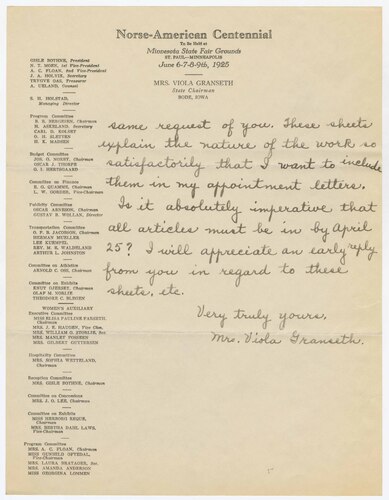 Norse-American Centennial
To Be Held at
Minnesota State Fair Grounds
ST. PAUL—MINNEAPOLIS
June 6-7-8-9th, 1925
MRS. VIOLA GRANSETH
State Chairman
BODE, IOWA
GISLE BOTHNE, President
N. T. MOEN, 1st Vice-President
A. C. FLOAN, 2nd Vice-President
J. A. HOLVIK, Secretary
TRYGVE OAS, Treasurer
A. UELAND, Counsel
S. H. HOLSTAD,
Managing Director
Program Committee
R. R. BERGESEN, Chairman
H. ASKELAND, Secretary
CARL D. KOLSET
O. H. SLETTEN
H. K. MADSEN
Budget Committee
JOS. G. NORBY, Chairman
OSCAR J. THORPE
G. I. HERTSGAARD
Committee on Finance
E. G. QUAMME, Chairman
L. W. GORDER, Vice-Chairman
Publicity Committee
OSCAR ARNESON, Chairman
GUSTAV B. WOLLAN, Director
Transportation Committee
O. P. B. JACOBSON, Chairman
HERMAN MUELLER
LEE KUEMPEL
REV. M. E. WALDELAND
ARTHUR L. JOHNSTON
Committee on Athletics
ARNOLD C. OSS, Chairman
Committee on Exhibits
KNUT GJERSET, Chairman
OLAF M. NORLIE
THEODORE C. BLEGEN
WOMEN'S AUXILIARY
Executive Committee
MISS ELISA PAULINE FARSETH,
Chairman
MRS. J. E. HAUGEN, Vice Chm.
MRS. WILLIAM O. STORLIE, Sec.
MRS. MANLEY FOSSEEN
MRS. GILBERT GUTTERSEN
Hospitality Committee
MRS. SOPHIA WETTELAND,
Chairman
Reception Committee
MRS. GISLE BOTHNE, Chairman
Committee on Concessions
MRS. J. O. LEE, Chairman
Committee on Exhibits
MISS HERBORG REQUE,
Chairman
MRS. BERTHA DAHL LAWS,
Vice-Chairman
Program Committee
MRS. A. C. FLOAN, Chairman
MISS GUNHILD OFTEDAL,
Vice-Chairman
MRS. LAURA BRATAGER, Sec.
MRS. AMANDA ANDERSON
MISS GEORGINA LOMMEN
same request of you. These sheets
explain the nature of the work so
satisfactorily that I want to include
them in my appointment letters.
Is it absolutely imperative that
all articles must be in by April
25? I will appreciate an early reply
from you in regard to these
sheets, etc.
Very truly yours,
Mrs. Viola Granseth.